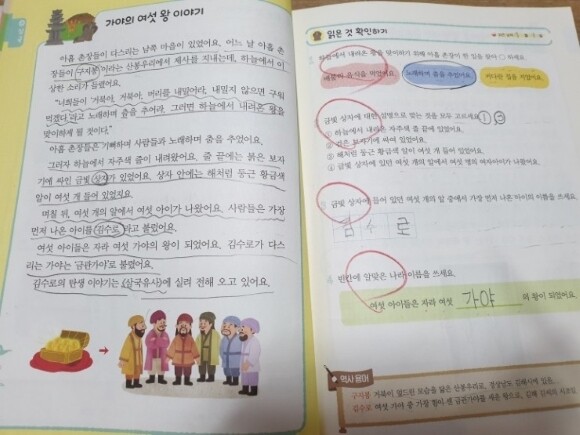 가야의 여섯 왕 이야기
아홉 촌장들이 다스리는 남쪽 마을이 있었어요. 어느 날 아홉 촌
장들이 '구지봉'이라는 산봉우리에서 제사를 지내는데, 하늘에서 이
상한 소리가 들렸어요.
"너희들이 '거북아, 거북아, 머리를 내밀어라. 내밀지 않으면 구워
먹겠다.'라고 노래하며 춤을 추어라. 그러면 하늘에서 내려온 왕을
맞이하게 될 것이다."
아홉 촌장들은 기뻐하며 사람들과 노래하며 춤을 추었어요.
그러자 하늘에서 자주색 줄이 내려왔어요. 줄 끝에는 붉은 보자
기에 싸인 금빛 상자가 있었어요. 상자 안에는 해처럼 둥근 황금색
알이 여섯 개 들어 있었지요.
며칠 뒤, 여섯 개의 알에서 여섯 아이가 나왔어요. 사람들은 가장
먼저 나온 아이를 '김수로'라고 불렀어요.
여섯 아이들은 자라 여섯 가야의 왕이 되었어요. 김수로가 다스
리는 가야는 '금관가야'로 불렸어요.
김수로의 탄생 이야기는 《삼국유사》에 실려 전해 오고 있어요.
읽은 것 확인하기
1 하늘에서 내려온 왕을 맞이하기 위해 아홉 촌장이 한 일을 찾아 ○ 하세요.
음식을 먹었어요.
노래하며 춤을 추었어요.
커다란 집을 지었어요.
2 금빛 상자에 대한 설명으로 맞는 것을 모두 고르세요. ①, ③
① 하늘에서 내려온 자주색 줄 끝에 있었어요.
② 검은 보자기에 싸여 있었어요.
③ 해처럼 둥근 황금색 알이 여섯 개 들어 있었어요.
④ 금빛 상자에 있던 여섯 개의 알에서 여섯 명의 여자아이가 나왔어요.
3 금빛 상자에 들어 있던 여섯 개의 알 중에서 가장 먼저 나온 아이의 이름을 쓰세요.
김 수 로
4 빈칸에 알맞은 나라 이름을 쓰세요.
여섯 아이들은 자라 여섯 가야 의 왕이 되었어요.
역사 용어
구지봉 거북이 엎드린 모습을 닮은 산봉우리로, 경상남도 김해시에 있음.
김수로 여섯 가야 중 가장 힘이 센 금관가야를 세운 왕으로, 김해 김씨의 시조임.